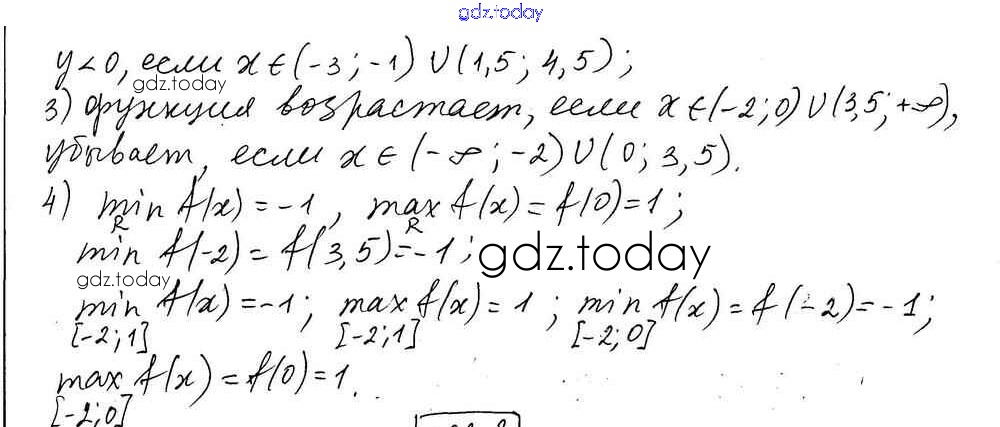 gdz.today
y<0, если x∈(-3;-1)∪(1,5; 4,5);
gdz.today
3) функция возрастает, если x∈(-2;0)∪(3,5;+∞),
убывает, если x∈(-∞;-2)∪(0; 3,5).
4) min f(x)=-1, max f(x)=f(0)=1;
R R
min f(-2)=f(3,5)=-1; gdz.today
gdz.today
min f(x)=-1; max f(x)=1; min f(x)=f(-2)=-1;
[-2;1] [-2;1] [-2;0]
max f(x)=f(0)=1.
[-2;0]